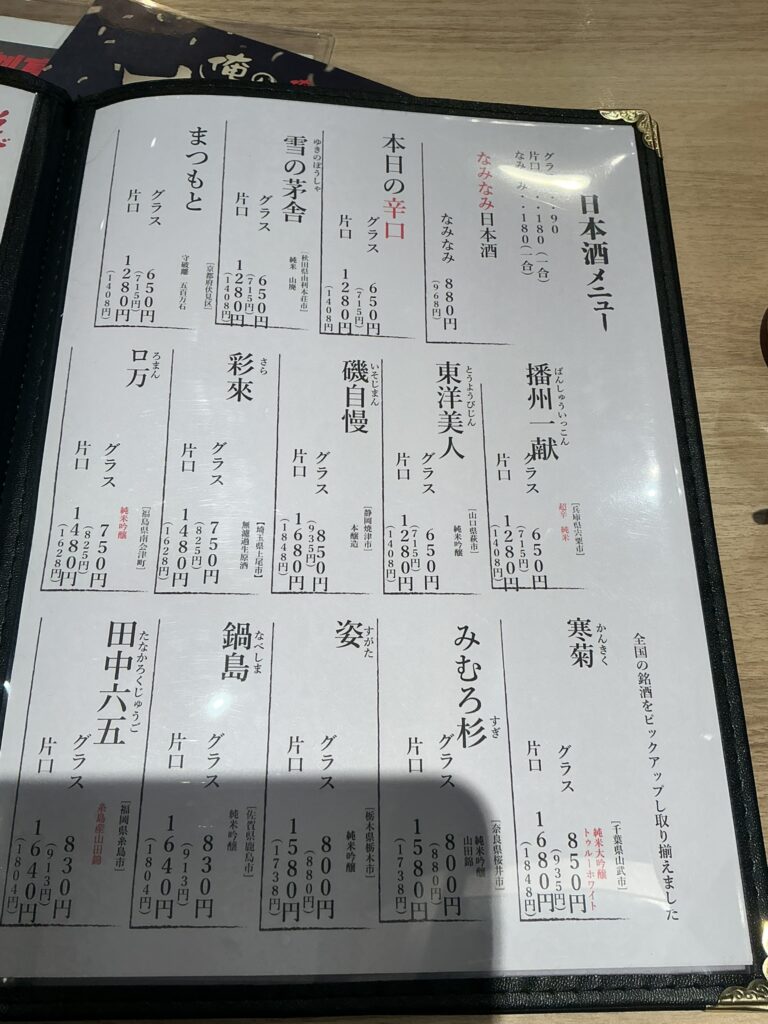 俺の
日本酒メニュー
グラス・・・90
片口・・・180(一合)
なみなみ・・180(一合)
なみなみ日本酒
なみなみ 880円
(968円)
本日の辛口
グラス 650円
(715円)
片口 1280円
(1408円)
ゆきのぼうしゃ
雪の茅舎
[秋田県由利本荘市]
純米 山廃
グラス 650円
(715円)
片口 1280円
(1408円)
まつもと
[京都府伏見区]
守破離 五百万石
グラス 650円
(715円)
片口 1280円
(1408円)
ばんしゅういっこん
播州一献
[兵庫県宍粟市]
超辛 純米
グラス 650円
(715円)
片口 1280円
(1408円)
とうようびじん
東洋美人
[山口県萩市]
純米吟醸
グラス 650円
(715円)
片口 1280円
(1408円)
いそじまん
磯自慢
[静岡焼津市]
本醸造
グラス 850円
(935円)
片口 1680円
(1848円)
さら
彩來
[埼玉県上尾市]
無濾過生原酒
グラス 750円
(825円)
片口 1480円
(1628円)
ろまん
ロ万
[福島県南会津町]
純米吟醸
グラス 750円
(825円)
片口 1480円
(1628円)
全国の銘酒をピックアップし取り揃えました
かんきく
寒菊
[千葉県山武市]
純米大吟醸
トゥルーホワイト
グラス 850円
(935円)
片口 1680円
(1848円)
すぎ
みむろ杉
[奈良県桜井市]
純米吟醸
山田錦
グラス 800円
(880円)
片口 1580円
(1738円)
すがた
姿
[栃木県栃木市]
純米吟醸
グラス 800円
(880円)
片口 1580円
(1738円)
なべしま
鍋島
[佐賀県鹿島市]
純米吟醸
グラス 830円
(913円)
片口 1640円
(1804円)
たなかろくじゅうご
田中六五
[福岡県糸島市]
糸島産山田錦
グラス 830円
(913円)
片口 1640円
(1804円)